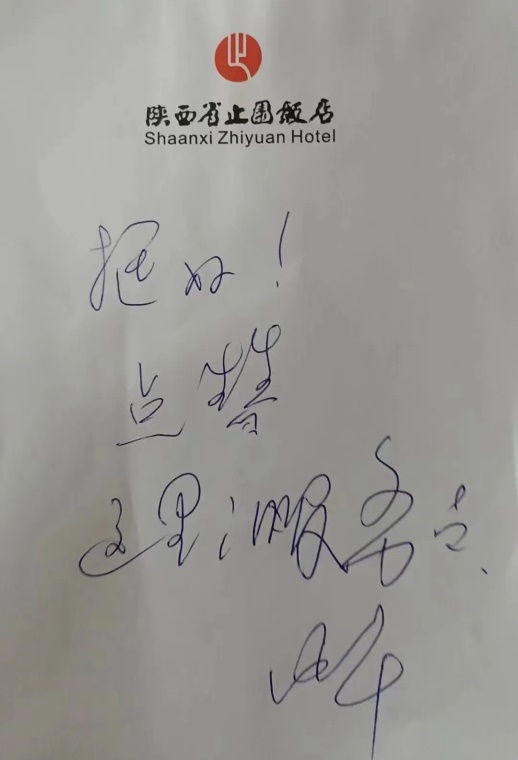 陕西省止园饭店
Shaanxi Zhiyuan Hotel
挺好!
点赞
这里的服务